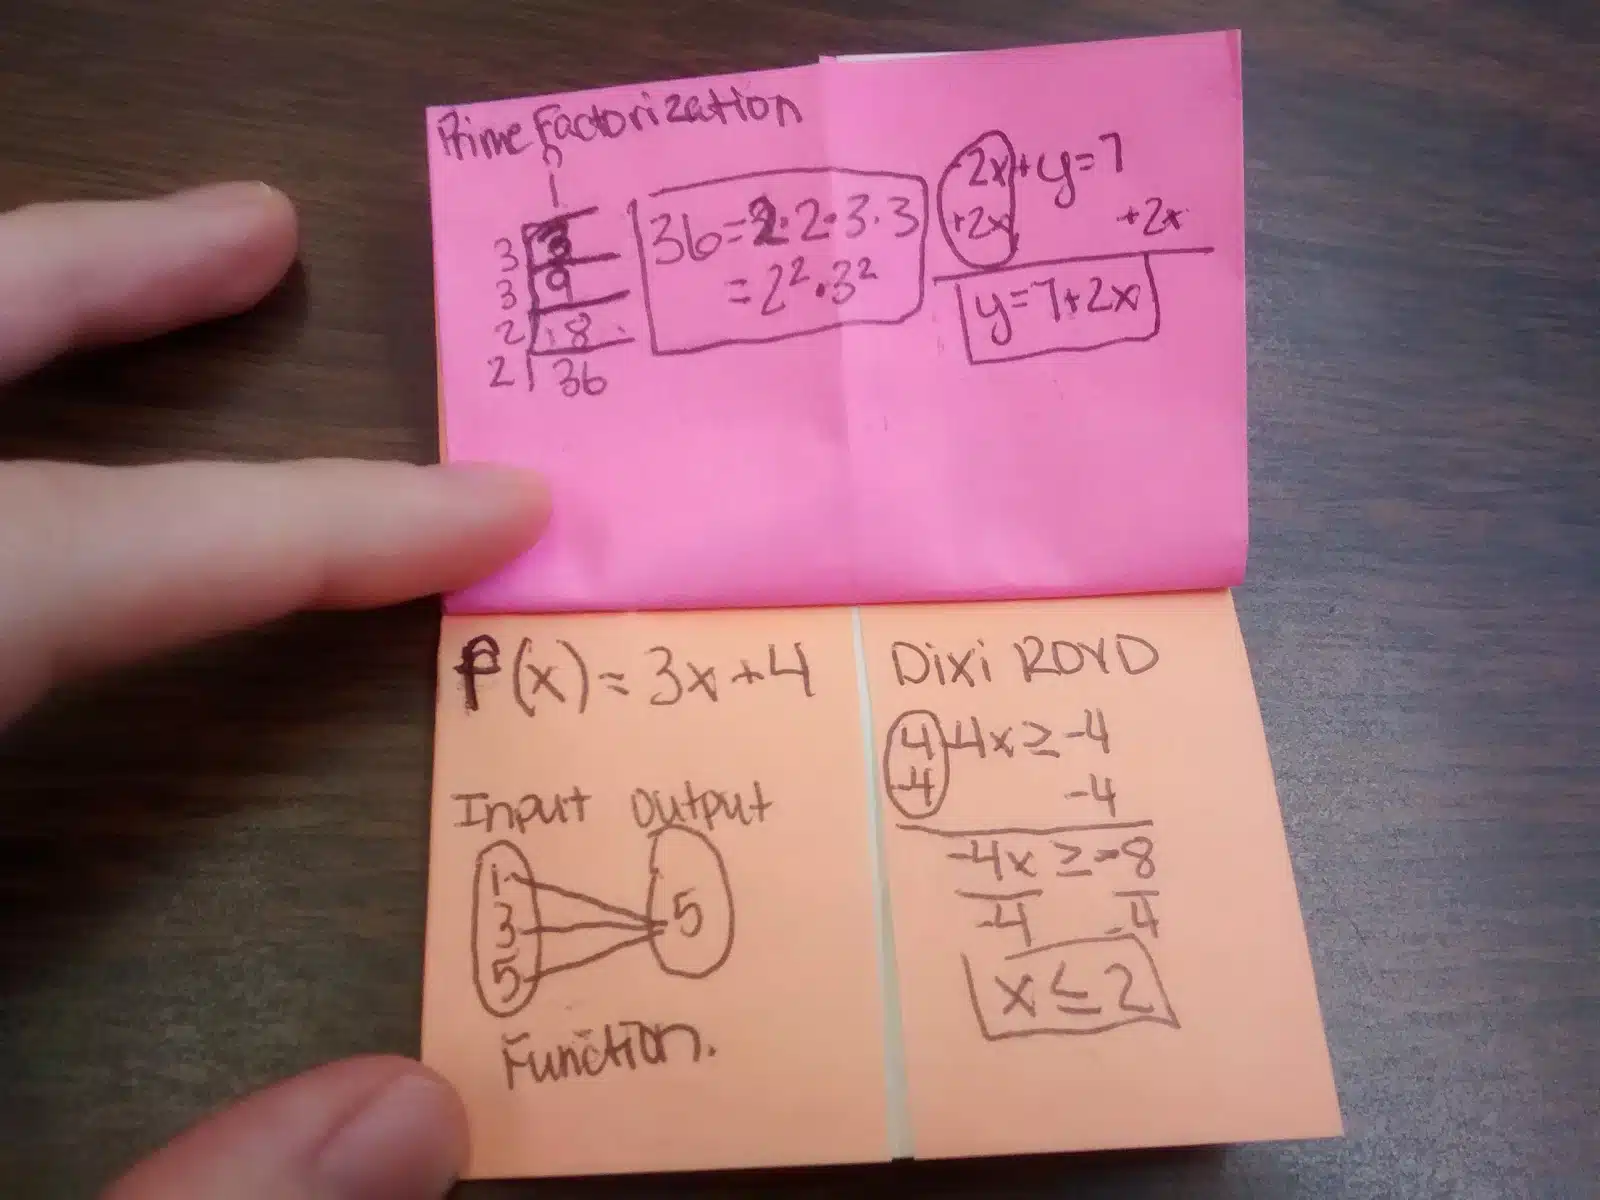 Prime Factorization
1
3 3
3 9
2 18
2 36
36=2·2·3·3
=2²·3²
-2x+y=7
+2x +2x
y=7+2x
f(x)=3x+4
Input Output
1
3
5
5
Function.
Dixi ROYD
4-4x≥-4
-4 -4
-4x≥-8
-4 -4
x≤2